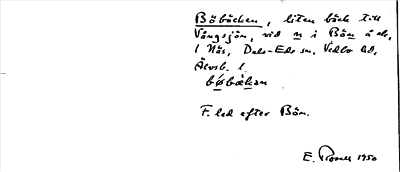 Böbäcken, liten bäck till
Vångsjön, vid n i Bön å ek,
1 Näs, Dals-Eds sn, Vedbo hd,
Älvsb. l.
bøbäkan
F. led efter Bön.
E. 1950